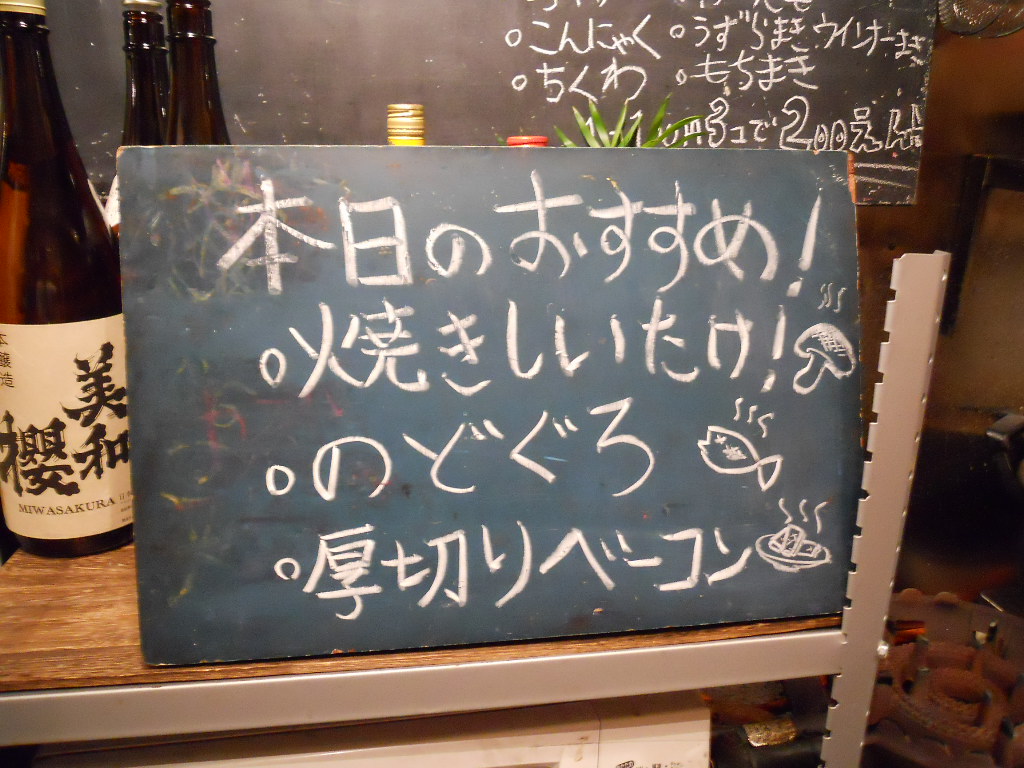 ○こんにゃく ○うずらまき ウインナーまき
○ちくわ ○もちまき
3コで200えん
本日のおすすめ!
○焼きしいたけ!
○のどぐろ
○厚切りベーコン
本醸造
美和櫻
MIWASAKURA